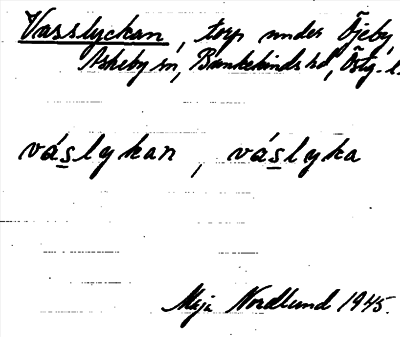 Vasslyckan, torp under Öjeby
Askeby sn, Bankekinds hd, Östg. l.
váslykan, váslyka
Maja Nordlund 1945.